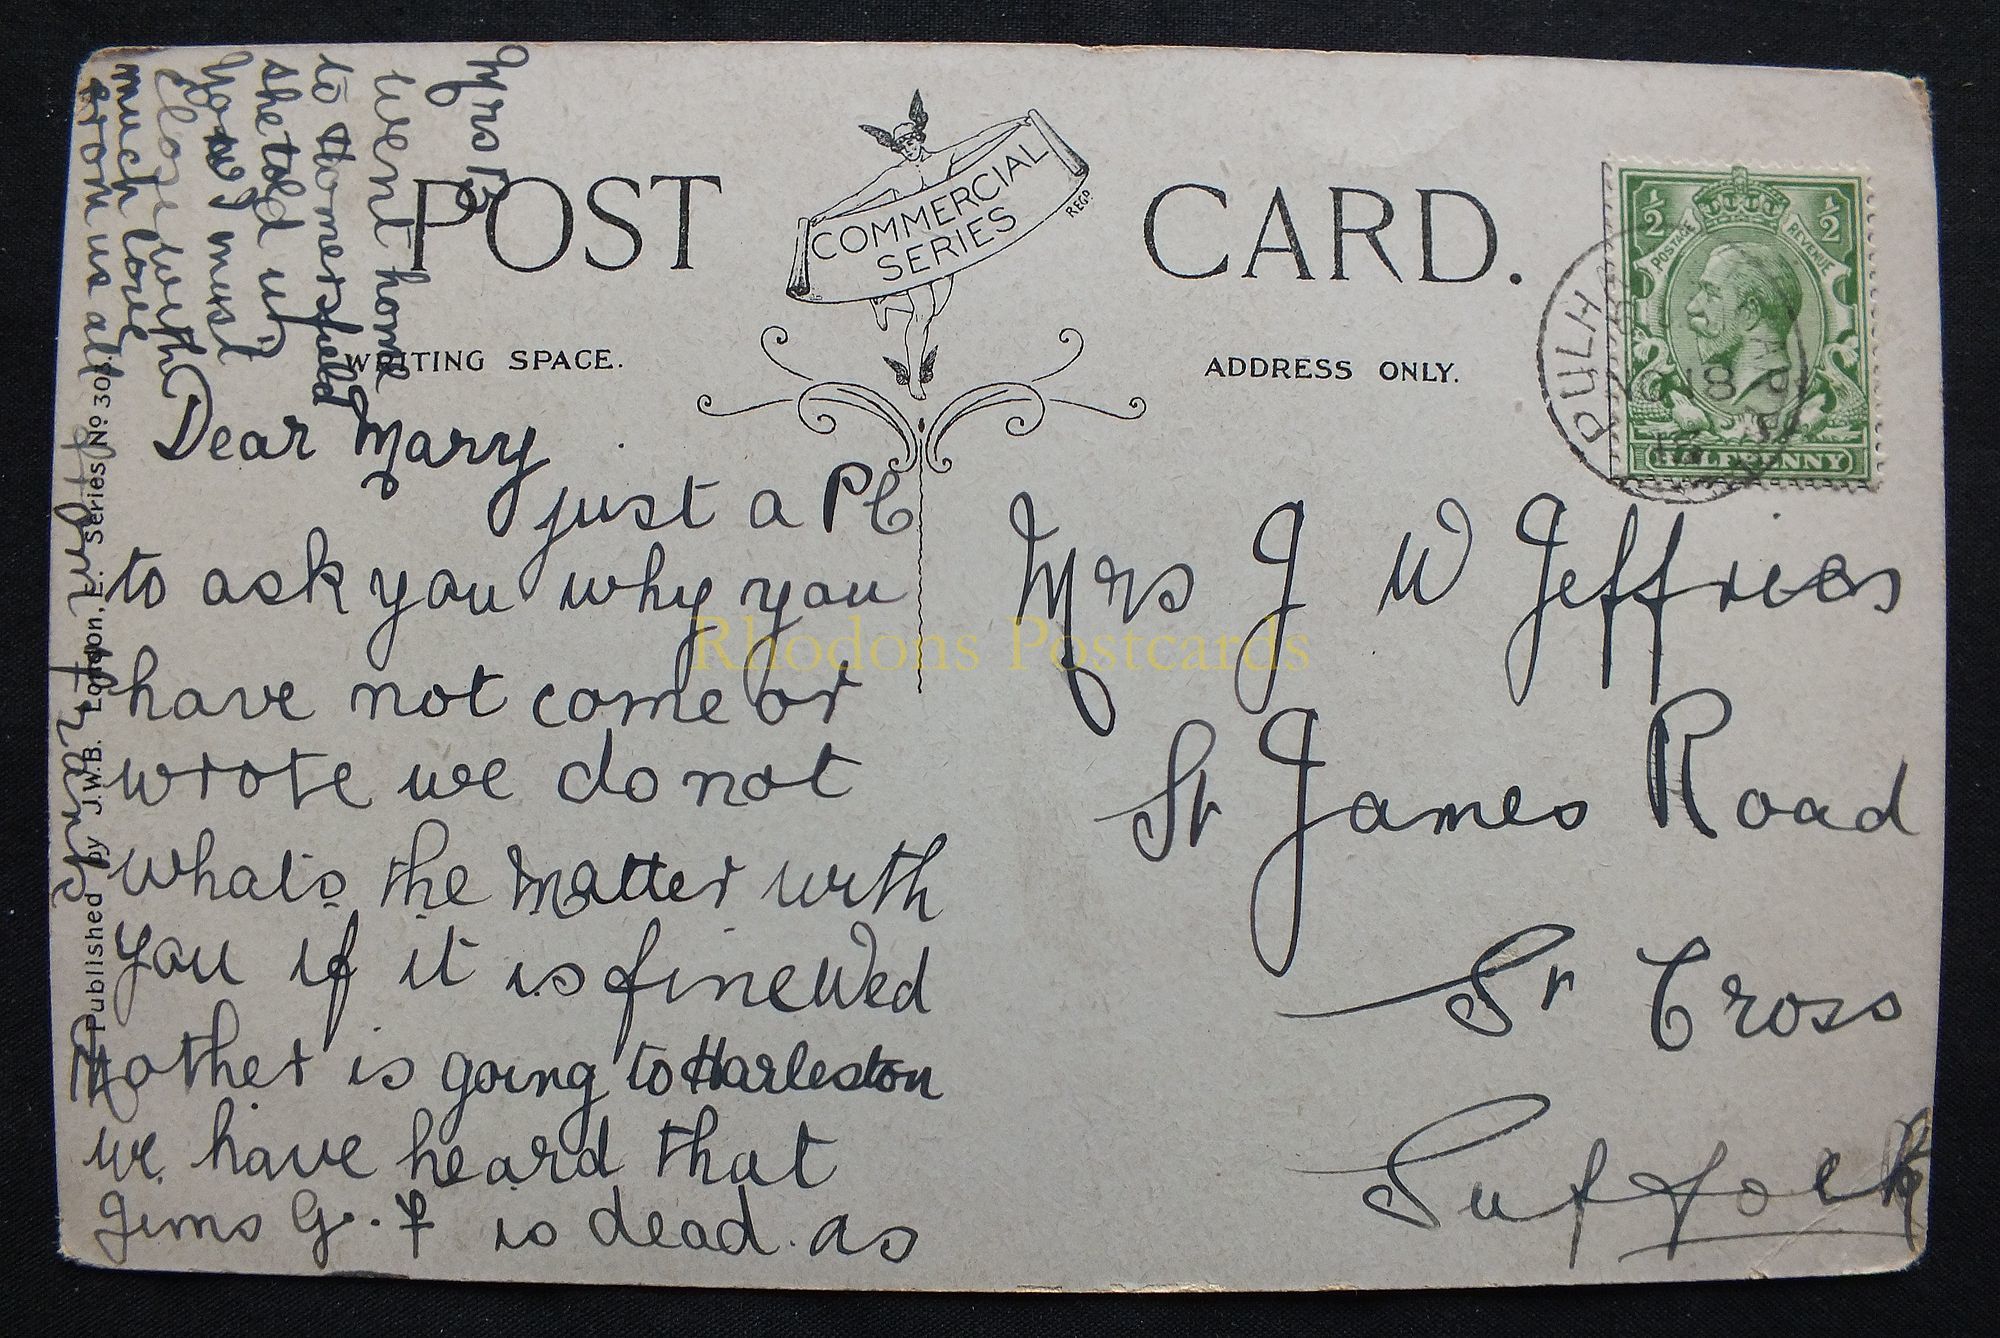 POST CARD.
COMMERCIAL
SERIES
REGD
WRITING SPACE.
ADDRESS ONLY.
½ ½
POSTAGE REVENUE
HALFPENNY
PULHA
18
Dear Mary
just a PC
to ask you why you
have not come or
wrote we do not
whats the matter with
you if it is fine Wed
Mother is going to Harleston
we have heard that
Jims G. F is dead. as
Mrs B
went home
to Homersfield
she told us
Now I must
close with
much love
from us all
Mrs J W Jeffries
St James Road
St Cross
Suffolk
Published by J.W.B. London, E. Series No 308.
Rhodons Postcards